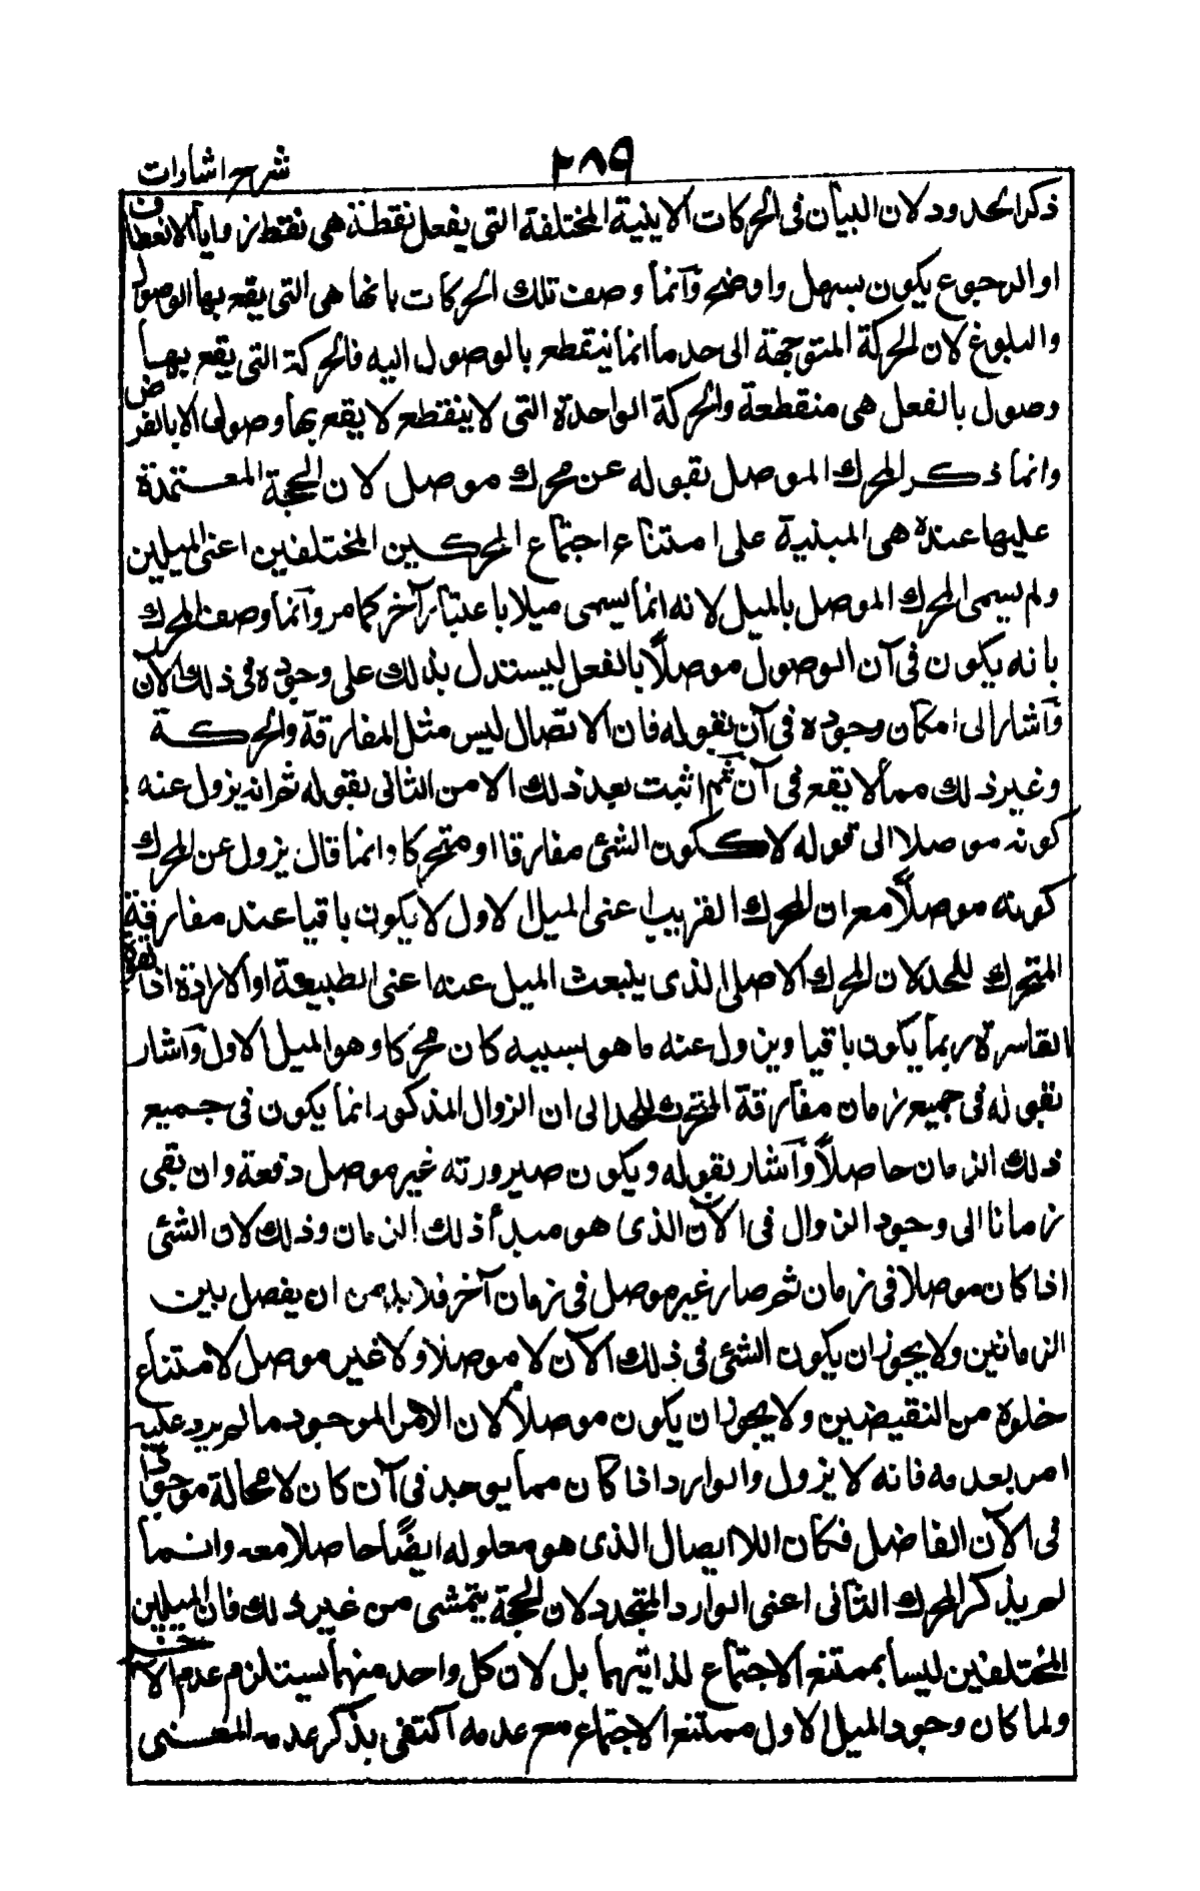 شرح اشارات
٢٨٩
ذكر الحدود لان البيان فى الحركات الاينية المختلفة التى يفعل نقطة هى نقط زوايا الانعطاف
او الرجوع يكون بسهل واوضح وآنما وصف تلك الحركات بانها هى التى يقع بها الوصول
والبلوغ لان الحركة المتوجهة الى حد ما انما ينقطع بالوصول اليه فالحركة التى يقع بها
وصول بالفعل هى منقطعة والحركة الواحدة التى لا ينقطع لا يقع بها وصول الا بالفرض
وانما ذكر المحرك الموصل بقوله عن محرك موصل لان الحجة المعتمدة
عليها عنده هى المبنية على امتناع اجتماع المحركين المختلفين اعنى الميلين
ولم يسمى المحرك الموصل بالميل لانه انما يسمى ميلا باعتبار آخر كما مر وآنما وصف المحرك
بانه يكون فى آن الوصول موصلاً بالفعل ليستدل بذلك على وجوده فى ذلك الآن
وآشار الى امكان وجوده فى آن بقوله فان الاتصال ليس مثل المفارقة والحركة
وغير ذلك مما لا يقع فى آن ثم اثبت بعد ذلك الامن الثانى بقوله ثم انه يزول عنه
كونه موصلا الى قوله لا ككون الشئ مفارقا او متحركا وانما قال يزول عن المحرك
كونه موصلاً مع ان المحرك القريب اعنى الميل الاول لا يكون باقيا عند مفارقة
المتحرك للحد لان المحرك الاصلى الذى ينبعث الميل عنه اعنى الطبيعة او الارادة او القوة
القاسرة ربما يكون باقيا ويزول عنه ما هو بسببه كان محركا وهو الميل الاول وآشار
بقوله فى جميع زمان مفارقة المتحرك للحد الى ان الزوال المذكور انما يكون فى جميع
ذلك الزمان حاصلاً وآشار بقوله ويكون صيرورته غير موصل دفعة وان بقى
زمانا الى وجود الزوال فى الآن الذى هو مبدأ ذلك الزمان وذلك لان الشئ
اذا كان موصلا فى زمان ثم صار غير موصل فى زمان آخر فلا بد من ان يفصل بين
الزمانين ولا يجوز ان يكون الشئ فى ذلك الآن لا موصلا ولا غير موصل لامتناع
خلوه من النقيضين ولا يجوز ان يكون موصلاً لان الامر الموجود ما لم يرد عليه
امر بعدمه فانه لا يزول والوارد اذا كان مما يوجد فى آن كان لا محالة موجودا
فى الآن الفاضل فكان اللاايصال الذى هو معلوله ايضًا حاصلا معه وانما
لم يذكر المحرك الثانى اعنى الوارد المتجدد لان الحجة يتمشى من غير ذلك فان الميلين
المختلفين ليسا بممتنع الاجتماع لذاتيهما بل لان كل واحد منهما يستلزم عدم الآخر
ولما كان وجود الميل الاول ممتنع الاجتماع مع عدمه اكتفى بذكر عدمه المعنى